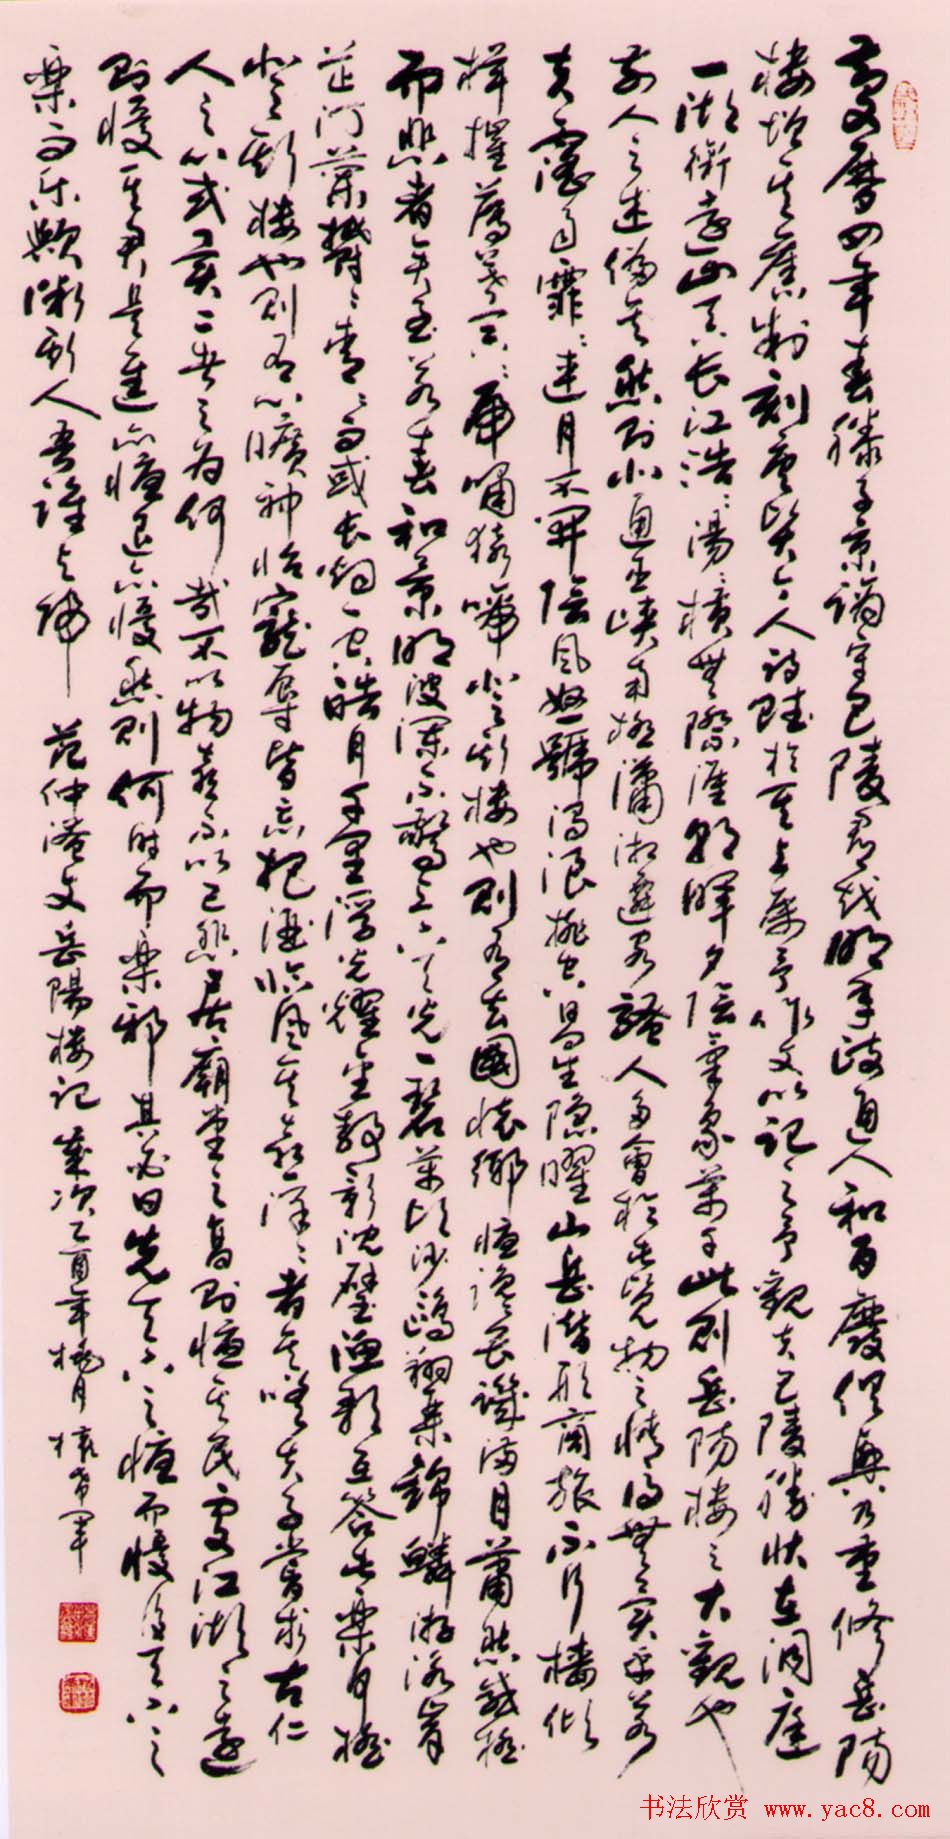 慶曆四年春滕子京謫守巴陵郡越明年政通人和百廢俱興乃重修岳陽
樓增其舊制刻唐賢今人詩賦於其上屬予作文以記之予觀夫巴陵勝狀在洞庭
一湖銜遠山吞長江浩〻湯〻橫無際涯朝暉夕陰氣象萬千此則岳陽樓之大觀也
前人之述備矣然則北通巫峽南極瀟湘遷客騷人多會於此覽物之情得無異乎若
夫霪雨霏〻連月不開陰風怒號濁浪排空日星隱曜山岳潛形商旅不行檣傾
楫摧薄暮冥〻虎嘯猿啼登斯樓也則有去國懷鄉憂讒畏譏滿目蕭然感極
而悲者矣至若春和景明波瀾不驚上下天光一碧萬頃沙鷗翔集錦鱗游泳岸
芷汀蘭鬱〻青〻而或長煙一空皓月千里浮光耀金靜影沈璧漁歌互答此樂何極
登斯樓也則有心曠神怡寵辱皆忘把酒臨風其喜洋〻者矣嗟夫予嘗求古仁
人之心或異二者之為何哉不以物喜不以己悲居廟堂之高則憂其民處江湖之遠
則憂其君是進亦憂退亦憂然則何時而樂耶其必曰先天下之憂而憂後天下之
樂而乐歟微斯人吾誰與歸 范仲淹文岳陽樓記 歲次乙酉年桃月
书法欣赏 www.yac8.com